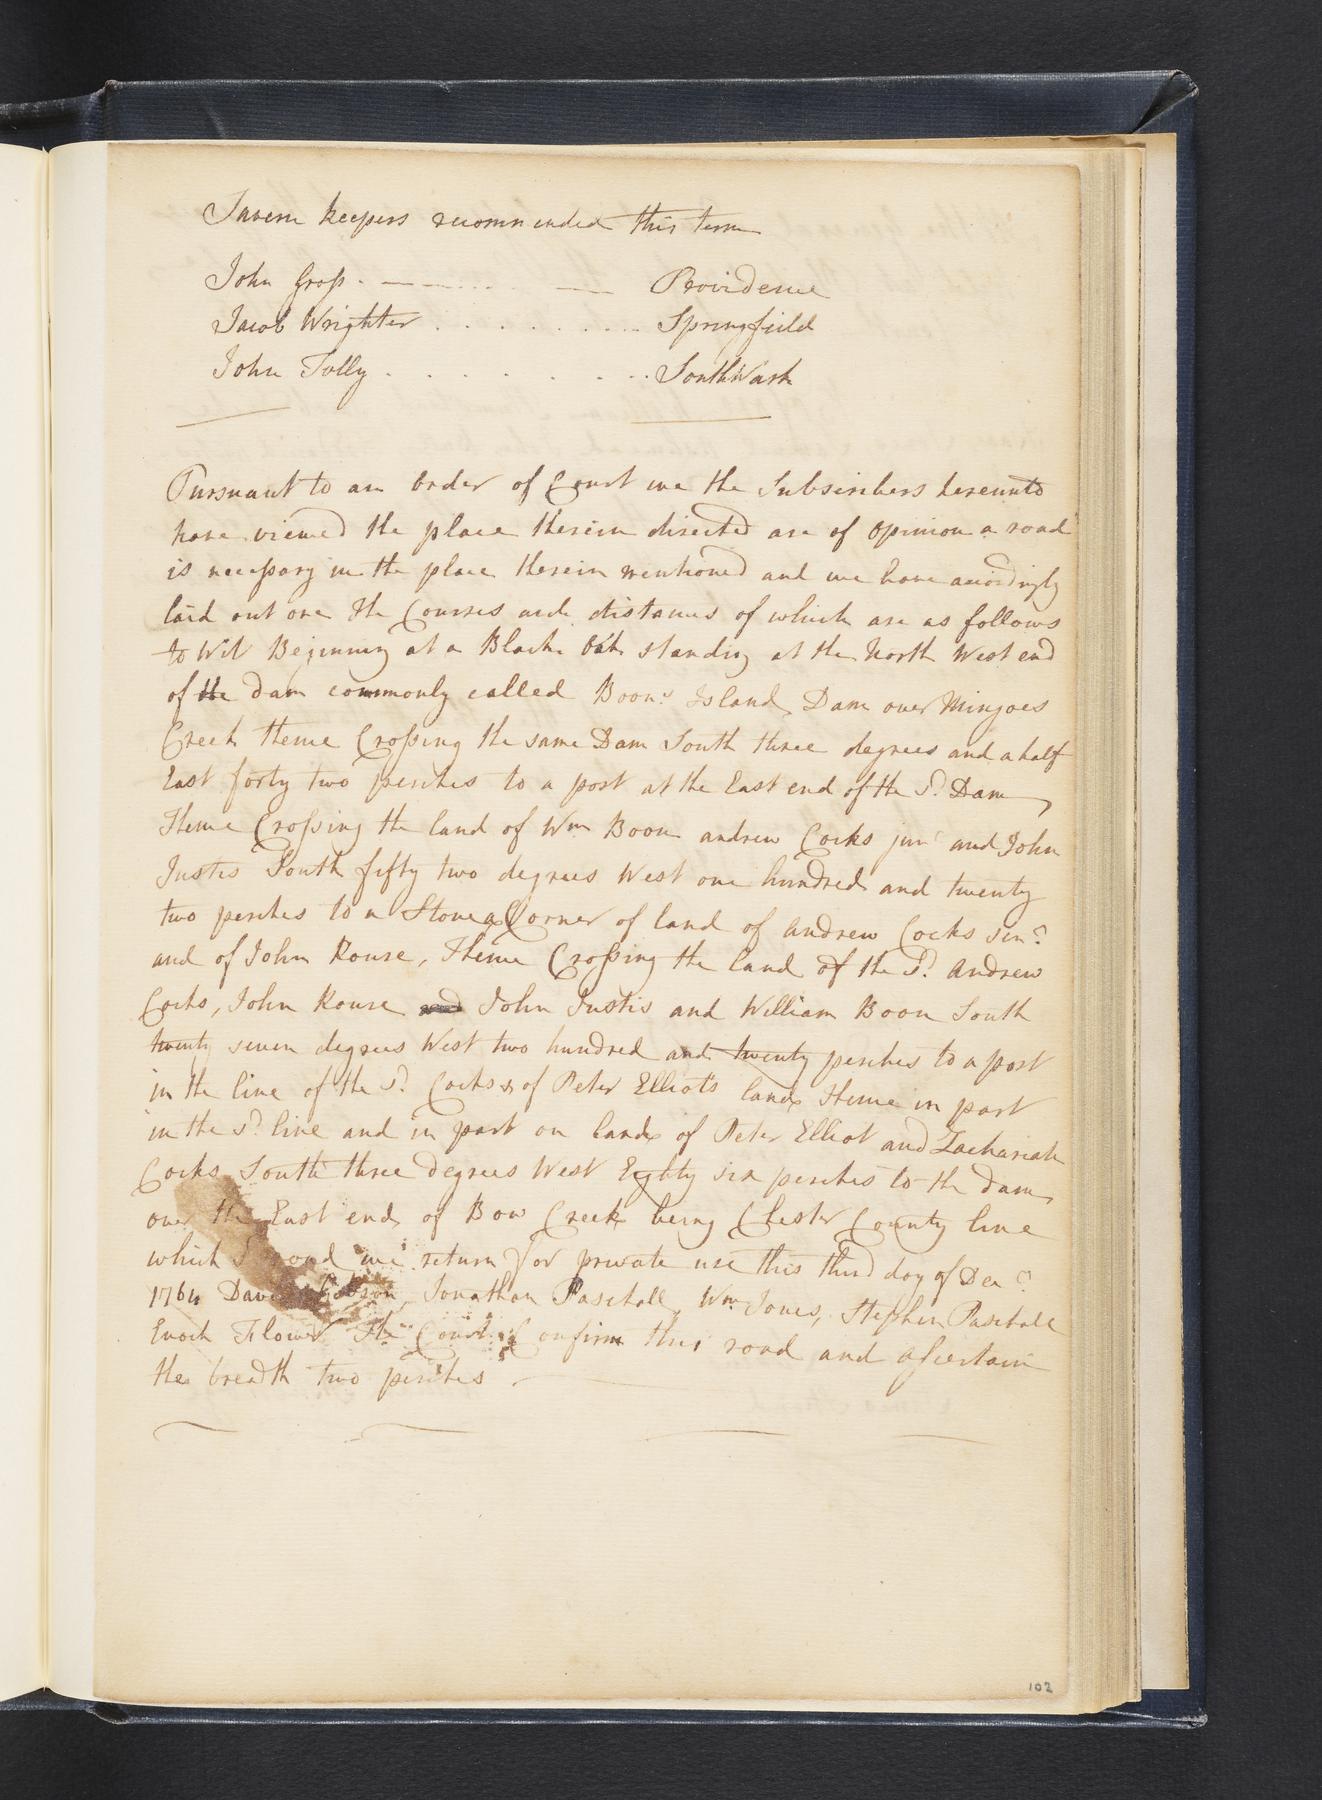 Tavern keepers recommended this term
John Gross . — — . . . — Providence
Jacob Wrighter . . . . . . . . . Springfield
John Tolly . . . . . . . . SouthWark
Pursuant to an order of Court we the Subscribers hereunto
have viewed the place therein directed are of opinion a road
is necessary in the place therein mentioned and we have accordingly
laid out one the Courses and distances of which are as follows
to Wit Beginning at a Black oak standing at the North West end
of the dam commonly called Boons Island Dam over Mingoes
Creek thence Crossing the same Dam South three degrees and a half
East forty two perches to a post at the East end of the sd. Dam,
Thence Crossing the land of Wm Boon andrew Cocks junr and John
Justis South fifty two degrees West one hundred and twenty
two perches to a Stone a Corner of land of andrew Cocks senr.
and of John Rouse, Thence Crossing the land of the sd. andrew
Cocks, John Rouse and John Justis and William Boon South
twenty seven degrees West two hundred and twenty perches to a post
in the line of the sd. Cocks & of Peter Elliots land Thence in part
in the sd. line and in part on land of Peter Elliot and Zachariah
Cocks South three degrees West Eighty six perches to the dam
over the East end of Bow Creek being Chester County line
which sd road we return for private use this third day of Decr.
1764 David Gibson, Jonathan Paschall, Wm Jones, Stephen Paschall
Enoch Flower The Court Confirm this road and ascertain
the breadth two perches
102